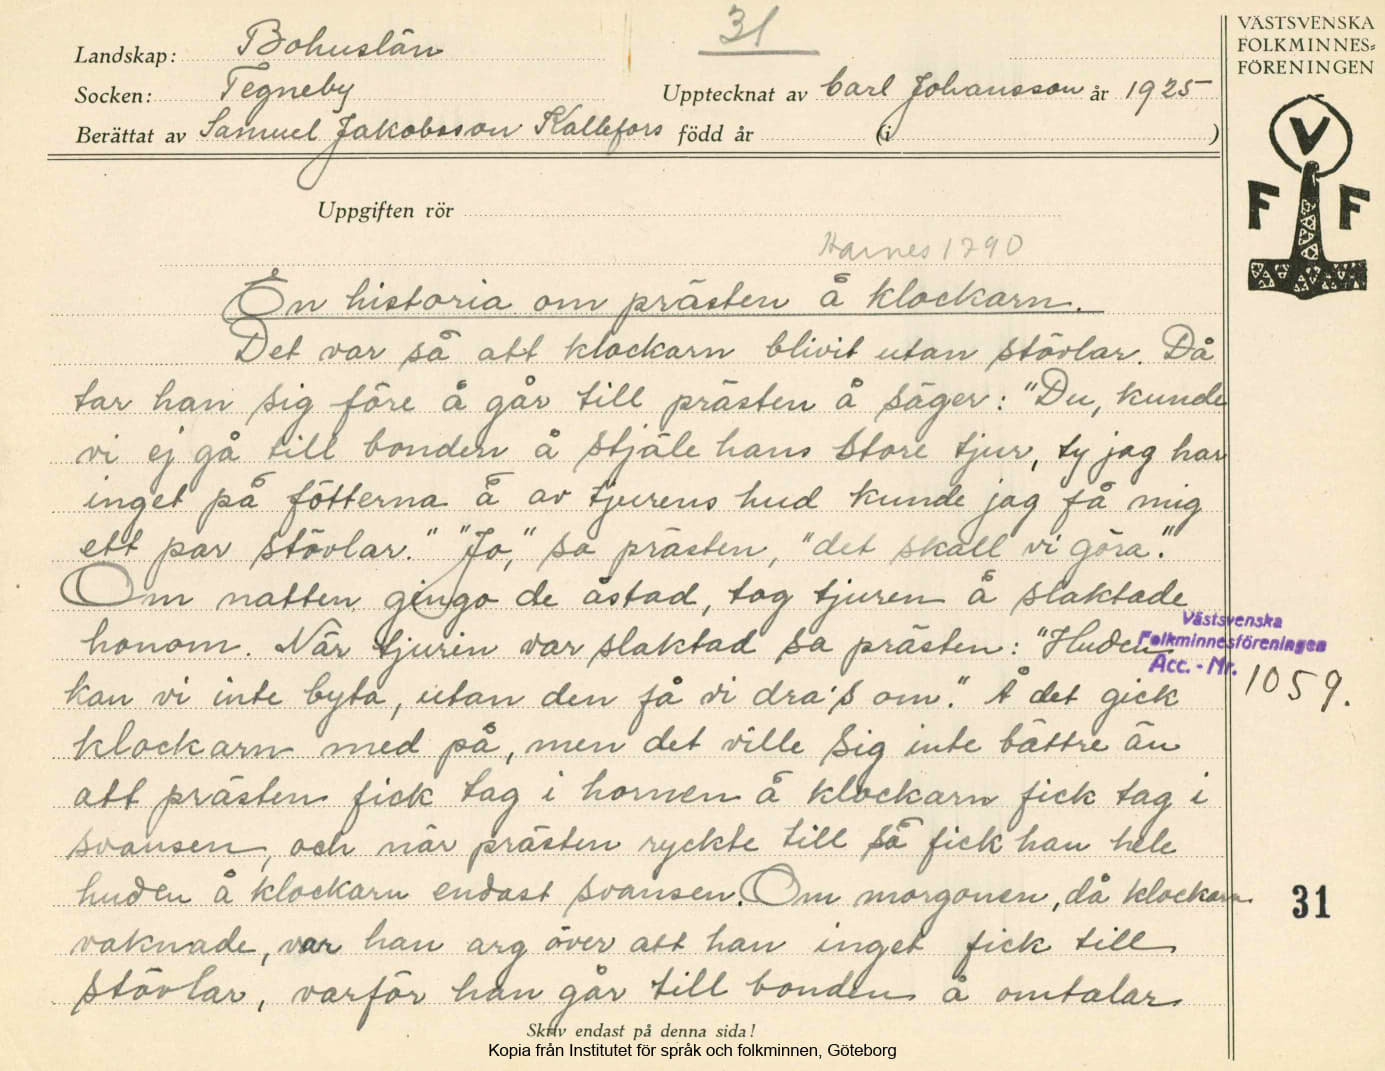 31
VÄSTSVENSKA
FOLKMINNES=
FÖRENINGEN
Landskap: Bohuslän
Socken: Tegneby
Upptecknat av Carl Johansson år 1925
Berättat av Samuel Jakobsson Kallefors född år (i )
V
F F
Uppgiften rör
1290
En historia om prästen å klockarn.
Det var så att klockarn blivit utan stövlar. Då
tar han sig före å går till prästen å säger: "Du, kunde
vi ej gå till bonden å stjäle hans store tjur, ty jag har
inget på fötterna å av tjurens hud kunde jag få mig
ett par stövlar." "Jo," sa prästen, "det skall vi göra."
Om natten gingo de åstad, tog tjuren å slaktade
honom. När tjurin var slaktad sa prästen: "Huden
kan vi inte byta, utan den få vi dra's om." Å det gick
klockarn med på, men det ville sig inte bättre än
att prästen fick tag i hornen å klockarn fick tag i
svansen, och när prästen ryckte till så fick han hele
huden å klockarn endast svansen. Om morgonen, då klockarn
vaknade, var han arg över att han inget fick till
stövlar, varför han går till bonden å omtalar
Västsvenska
Folkminnesföreningen
Acc. - Nr. 1059.
31
Skriv endast på denna sida!
Kopia från Institutet för språk och folkminnen, Göteborg